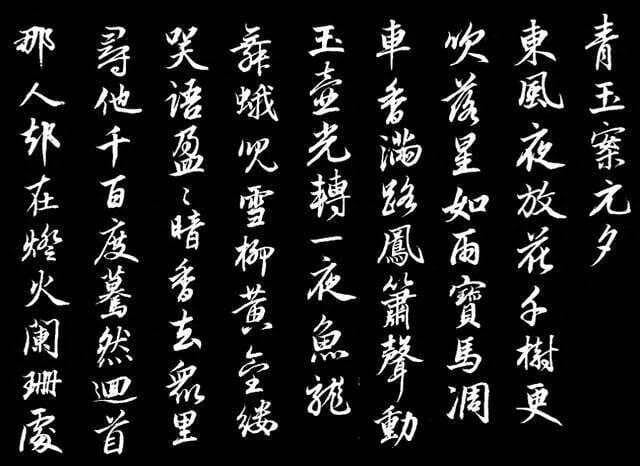 青玉案元夕
東風夜放花千樹更
吹落星如雨寶馬凋
車香滿路鳳簫聲動
玉壺光轉一夜魚龍
舞蛾兒雪柳黃金縷
笑語盈〻暗香去眾里
尋他千百度驀然迴首
那人却在燈火闌珊處